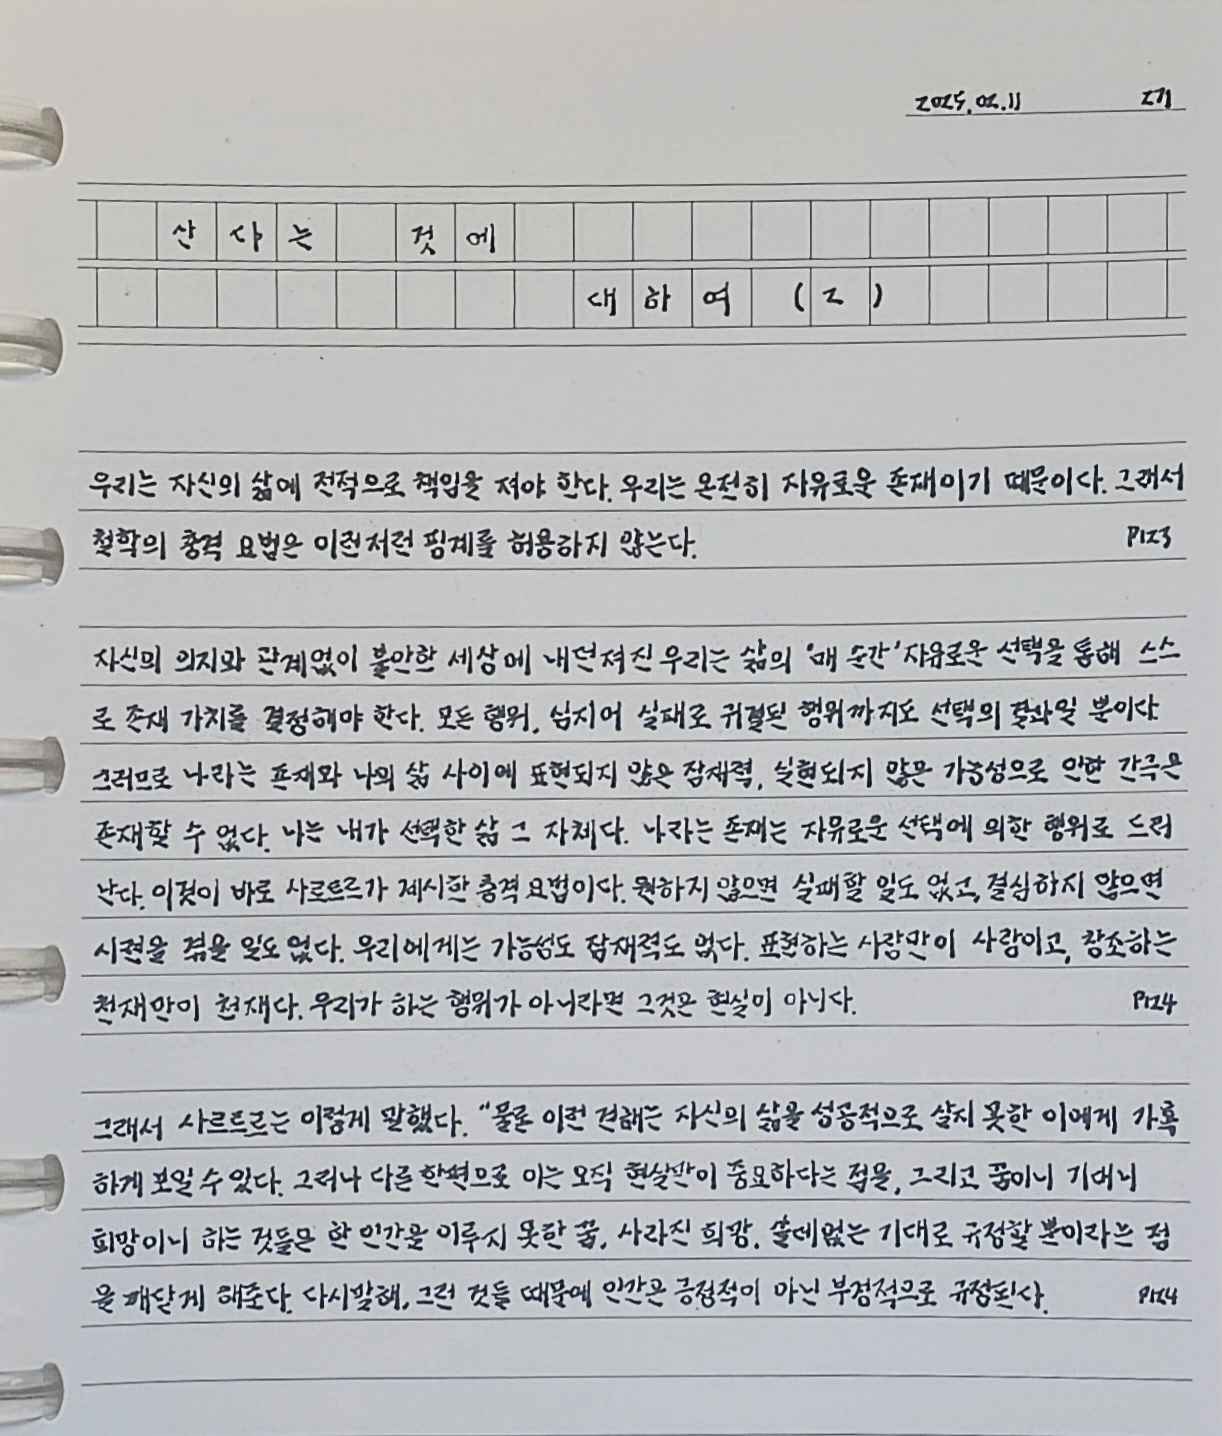 2025.02.11 2기
산다는 것에
대하여 (2)
우리는 자신의 삶에 전적으로 책임을 져야 한다. 우리는 온전히 자유로운 존재이기 때문이다. 그래서
철학의 충격 요법은 이런저런 핑계를 허용하지 않는다. P123
자신의 의지와 관계없이 불안한 세상에 내던져진 우리는 삶의 '매 순간' 자유로운 선택을 통해 스스
로 존재 가치를 결정해야 한다. 모든 행위, 심지어 실패로 귀결된 행위까지도 선택의 결과일 뿐이다
그러므로 나라는 존재와 나의 삶 사이에 표현되지 않은 잠재력, 실현되지 않은 가능성으로 인한 간극은
존재할 수 없다. 나는 내가 선택한 삶 그 자체다. 나라는 존재는 자유로운 선택에 의한 행위로 드러
난다. 이것이 바로 사르트르가 제시한 충격 요법이다. 원하지 않으면 실패할 일도 없고, 결심하지 않으면
시련을 겪을 일도 없다. 우리에게는 가능성도 잠재력도 없다. 표현하는 사랑만이 사랑이고, 창조하는
천재만이 천재다. 우리가 하는 행위가 아니라면 그것은 현실이 아니다. P124
그래서 사르트르는 이렇게 말했다. "물론 이런 견해는 자신의 삶을 성공적으로 살지 못한 이에게 가혹
하게 보일 수 있다. 그러나 다른 한편으로 이는 오직 현실만이 중요하다는 점을, 그리고 꿈이니 기대니
희망이니 하는 것들은 한 인간을 이루지 못한 꿈, 사라진 희망, 쓸데없는 기대로 규정할 뿐이라는 점
을 깨닫게 해준다. 다시말해, 그런 것들 때문에 인간은 긍정적이 아닌 부정적으로 규정된다. P124